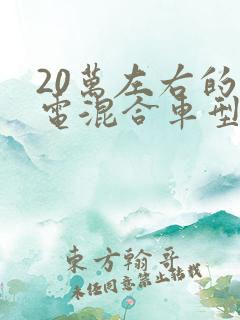 20萬左右的
電混合車型
東方翰哥
未任同意禁止轉載